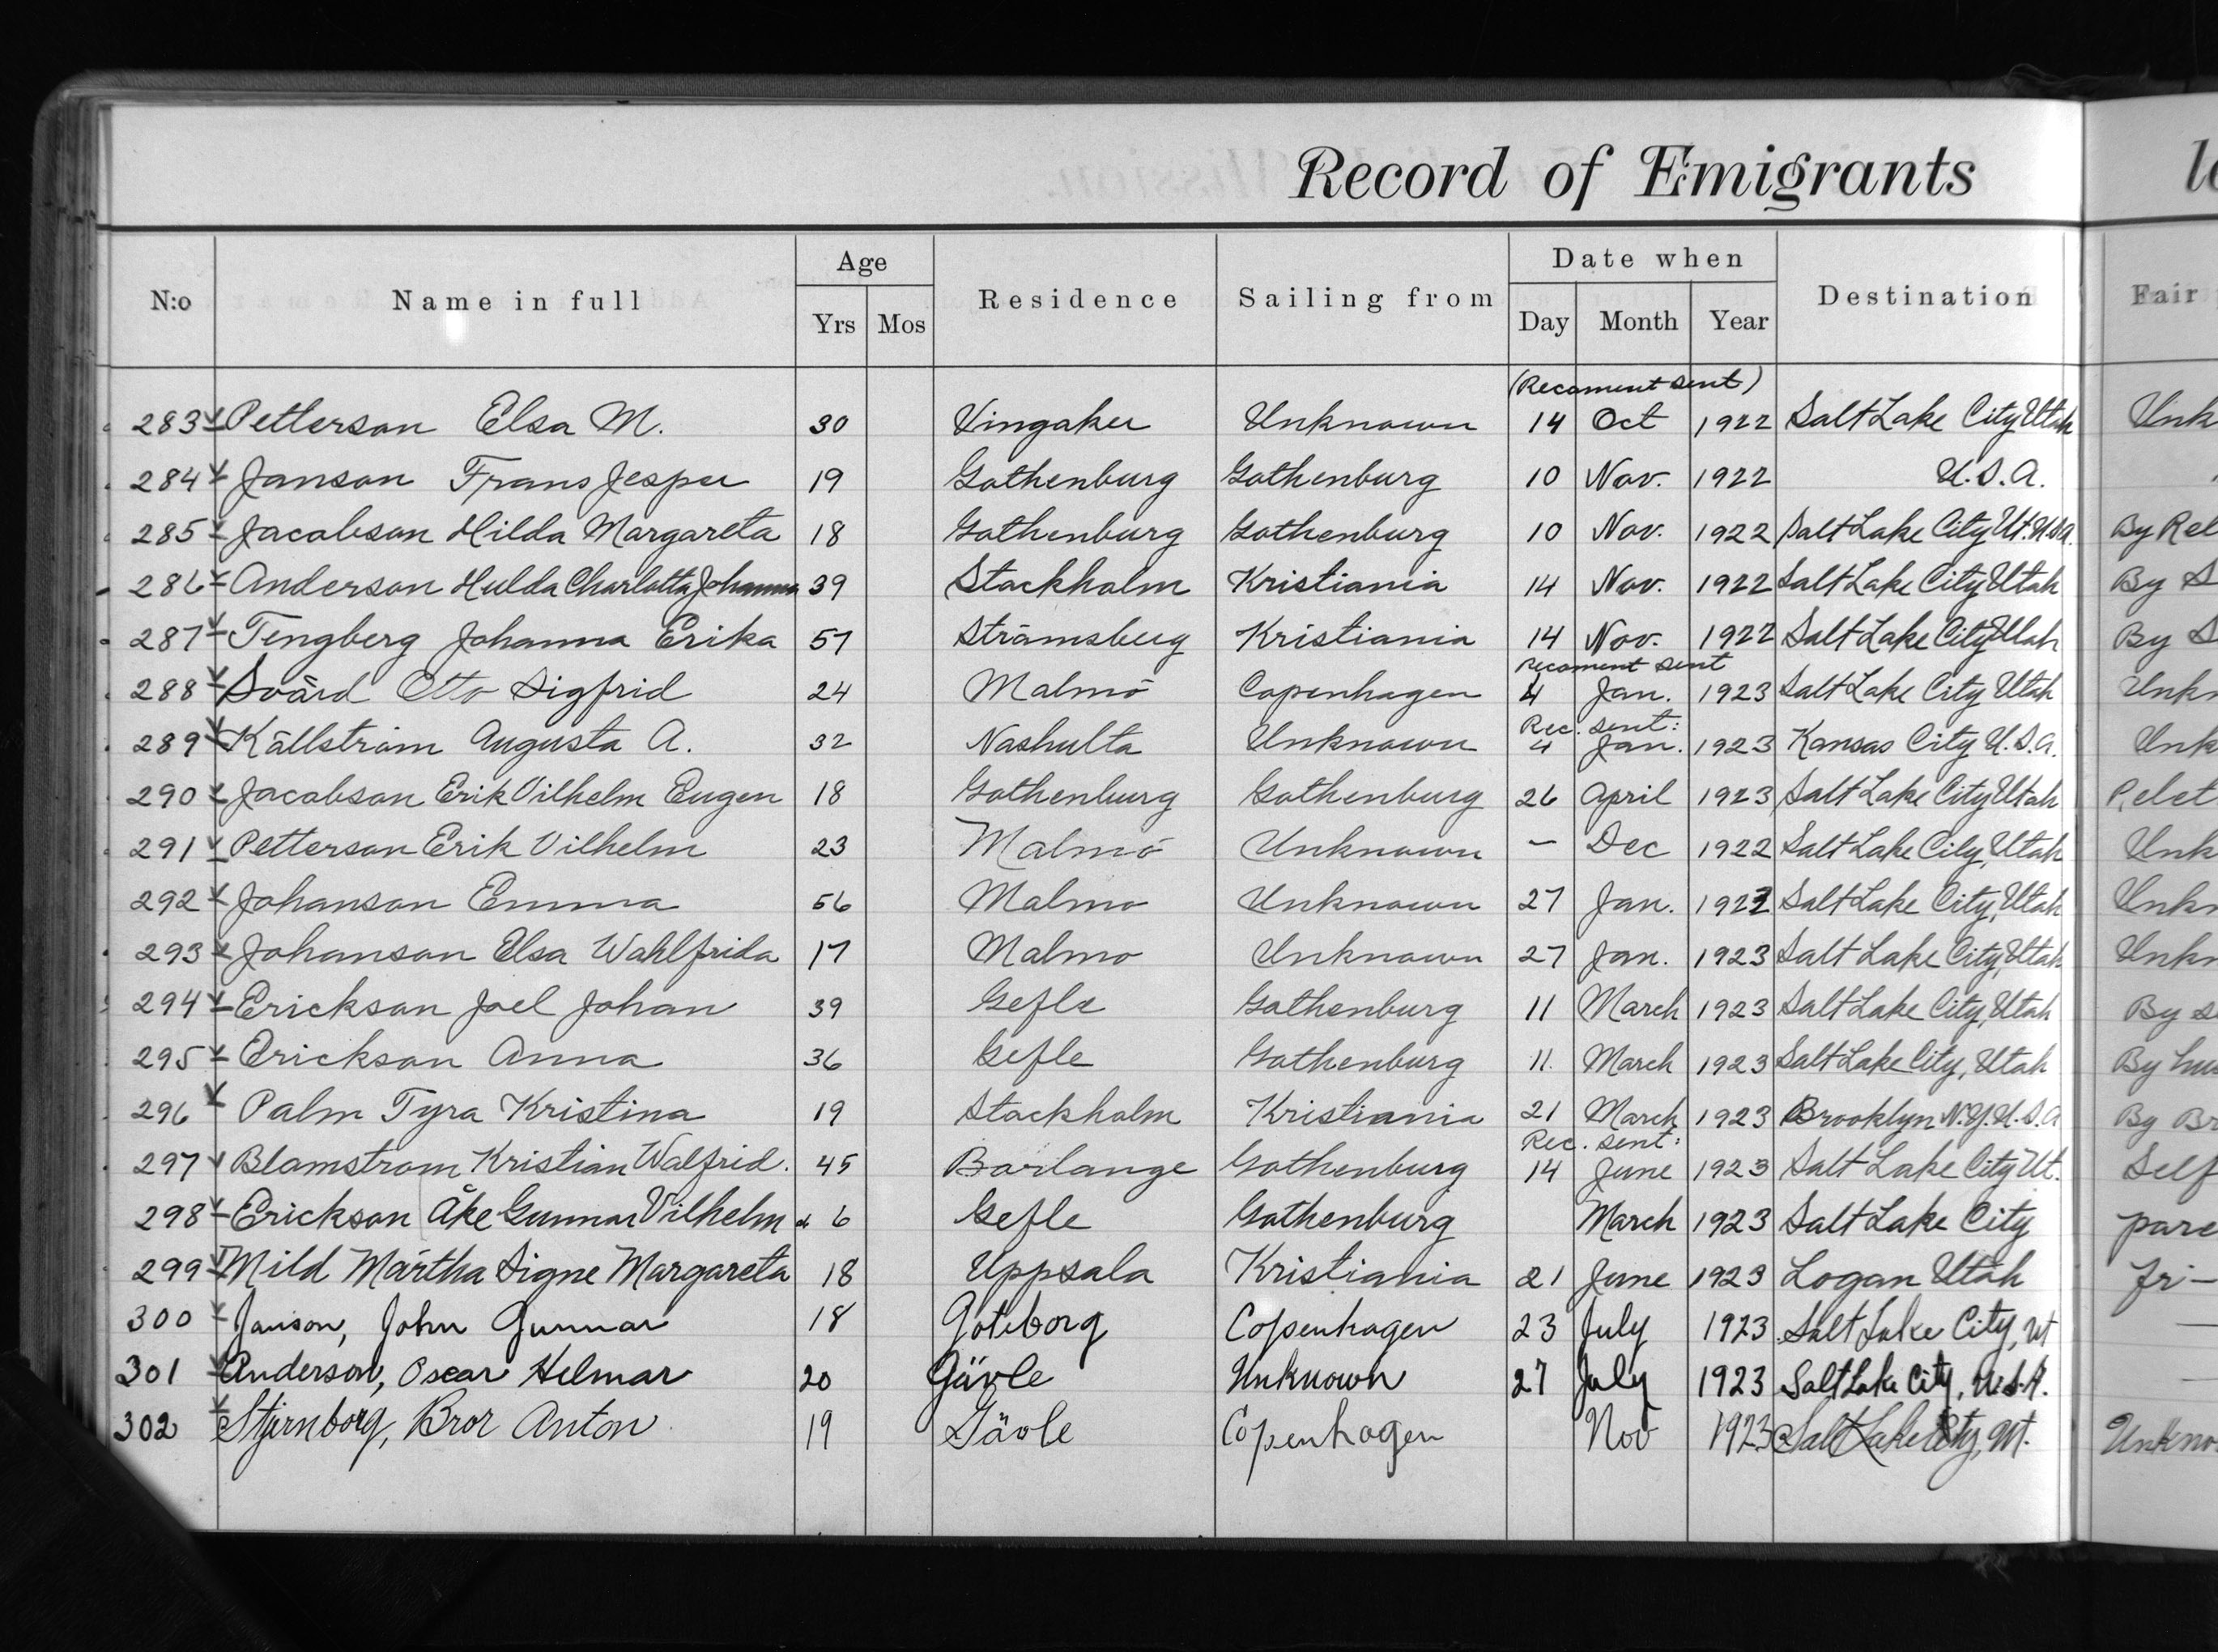 Record of Emigrants
N:o Name in full Age Yrs Mos Residence Sailing from Date when Day Month Year Destination Fair
(Recoment sent)
283 Petterson Elsa M. 30 Vingaker Unknown 14 Oct 1922 Salt Lake City Utah Unk
284 Janson Frans Jesper 19 Gothenburg Gothenburg 10 Nov. 1922 U.S.A.
285 Jacobson Hilda Margareta 18 Gothenburg Gothenburg 10 Nov. 1922 Salt Lake City Ut. U.S.A. By Rel
286 Anderson Hulda Charlotta Johanna 39 Stockholm Kristiania 14 Nov. 1922 Salt Lake City Utah By S
287 Tengberg Johanna Erika 57 Strömsberg Kristiania 14 Nov. 1922 Salt Lake City Utah By S
recoment sent
288 Svärd Otto Sigfrid 24 Malmö Copenhagen 4 Jan. 1923 Salt Lake City Utah Unkn
Rec. sent:
289 Källström Augusta A. 32 Nashulta Unknown 4 Jan. 1923 Kansas City U.S.A. Unk
290 Jacobson Erik Vilhelm Eugen 18 Gothenburg Gothenburg 26 April 1923 Salt Lake City Utah Relet
291 Petterson Erik Vilhelm 23 Malmö Unknown — Dec 1922 Salt Lake City, Utah Unk
292 Johanson Emma 56 Malmo Unknown 27 Jan. 1923 Salt Lake City, Utah Unkn
293 Johanson Elsa Wahlfrida 17 Malmo Unknown 27 Jan. 1923 Salt Lake City, Utah Unkn
294 Erickson Joel Johan 39 Gefle Gothenburg 11 March 1923 Salt Lake City, Utah By se
295 Erickson Anna 36 Gefle Gothenburg 11. March 1923 Salt Lake City, Utah By hus
296 Palm Tyra Kristina 19 Stockholm Kristiania 21 March 1923 Brooklyn N.Y. U.S.A By Br
Rec. sent:
297 Blomstrom Kristian Walfrid. 45 Borlange Gothenburg 14 June 1923 Salt Lake City Ut. Self
298 Erickson Åke Gunnar Vilhelm 6 Gefle Gothenburg March 1923 Salt Lake City pare
299 Mild Märtha Signe Margareta 18 Uppsala Kristiania 21 June 1923 Logan Utah Fr—
300 Janson, John Gunnar 18 Göteborg Copenhagen 23 July 1923 Salt Lake City, Ut —
301 Anderson, Oscar Helmar 20 Gävle Unknown 27 July 1923 Salt Lake City, U.S.A. —
302 Stjernborg, Bror Anton 19 Gävle Copenhagen Nov 1923 Salt Lake City, Ut. Unkno